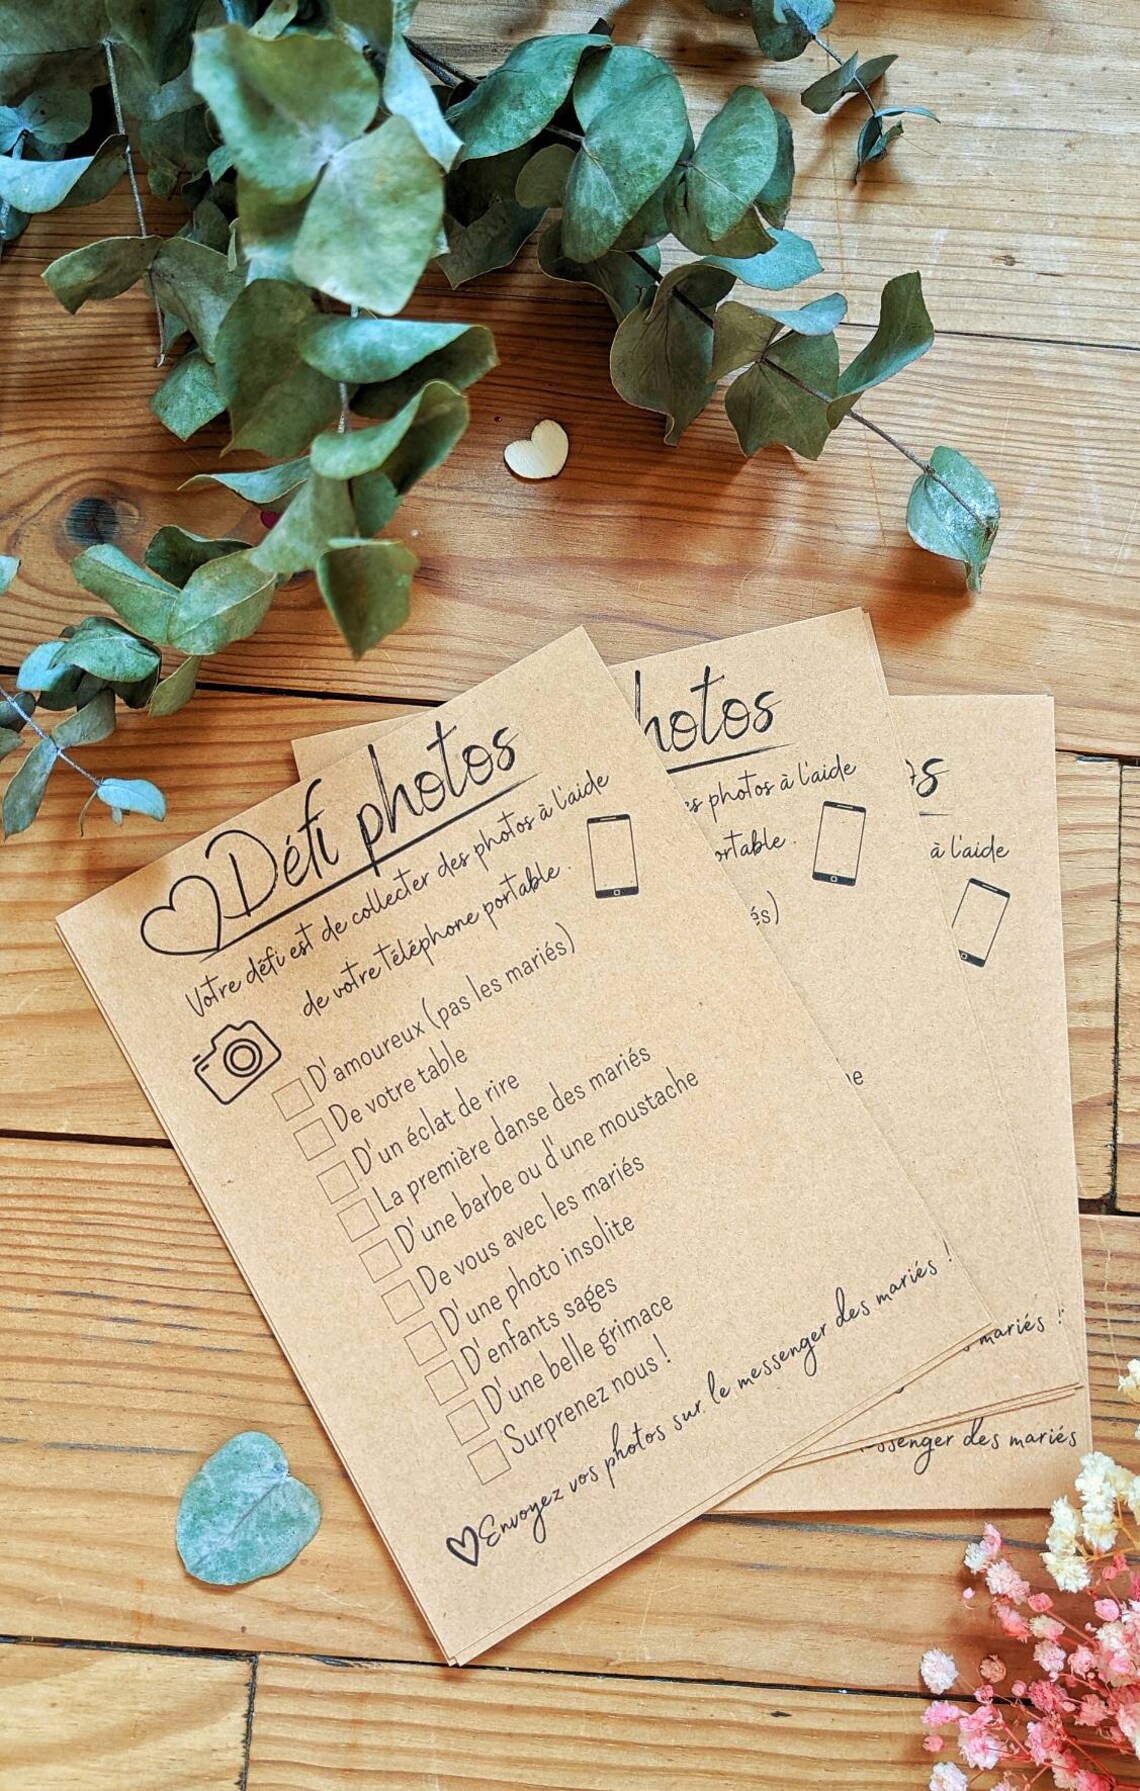 Défi photos
Votre défi est de collecter des photos à l'aide
de votre téléphone portable .
D'amoureux (pas les mariés)
De votre table
D'un éclat de rire
La première danse des mariés
D'une barbe ou d'une moustache
De vous avec les mariés
D'une photo insolite
D'enfants sages
D'une belle grimace
Surprenez nous !
Envoyez vos photos sur le messenger des mariés !
hotos
photos à l'aide
ortable .
és)
mariés !
s
à l'aide
ssenger des mariés